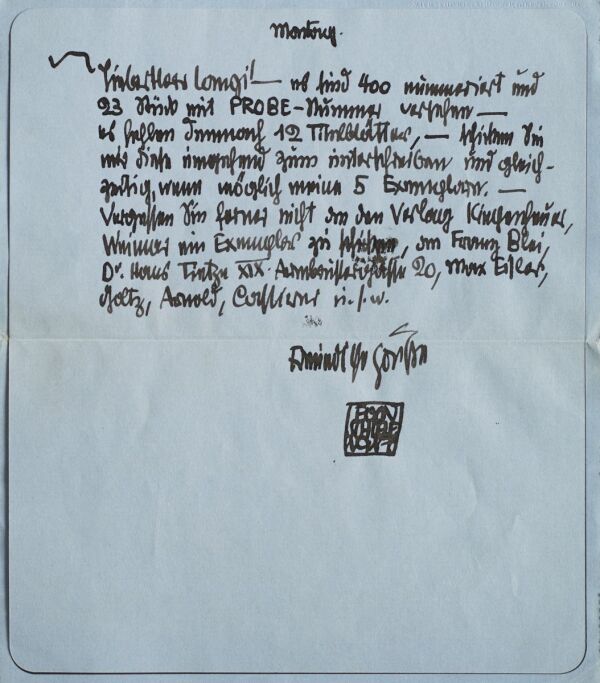 Montag.
Lieber Herr Lanyi! — es sind 400 nummeriert und
23 Stück mit PROBE-Nummer versehen —
es fehlen demnach 12 Titelblätter, — schicken Sie
mir diese umgehend zum unterschreiben und gleich-
zeitig, wenn möglich meine 5 Exemplare. —
Vergessen Sie ferner nicht an den Verlag Kiepenheuer,
Weimar ein Exemplar zu schicken, an Franz Blei,
Dr. Hans Tietze XIX. Armbrustergasse 20, Max Eisler,
Goltz, Arnold, Cassierer u. s. w.
Freundl. Grüße
EGON
SCHIELE